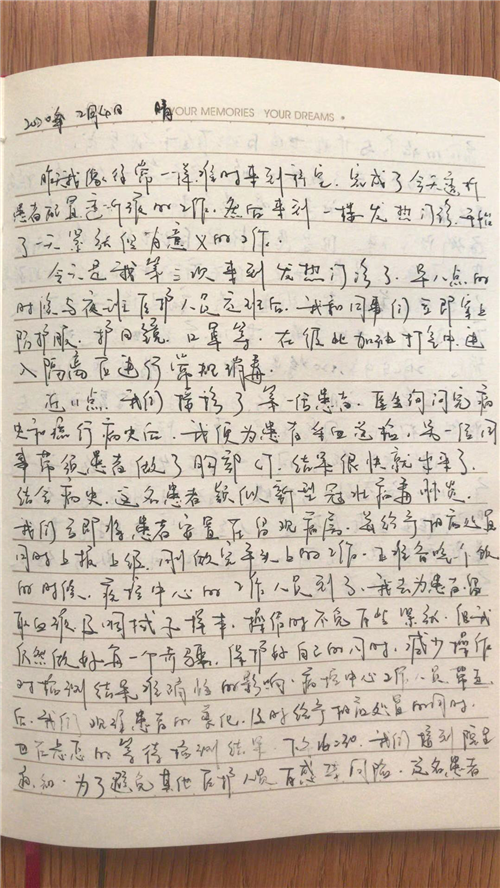 2020年 2月4日 晴
YOUR MEMORIES YOUR DREAMS
昨天我像往常一样准时来到科室，完成了今天透析
患者配置透析液的工作。然后来到一楼发热门诊，开始
了一天紧张但有意义的工作。
今天是我第三次来到发热门诊了。早八点的
时候与夜班医护人员交班后，我和同事们立即穿上
防护服、护目镜、口罩等，在彼此加油打气中，进
入隔离区进行常规消毒。
近11点，我们接诊了第一位患者，医生询问完病
史和流行病史后，我便为患者采血送检，另一位同
事带领患者做了胸部CT，结果很快就出来了，
结合病史，这名患者疑似新型冠状病毒肺炎。
我们立即将患者安置在留观病房，并给予相应处置
同时上报上级。刚做完手头上的工作，正准备吃个饭
的时候，疾控中心的工作人员到了，我去为患者留
取血液及咽拭子标本，操作时不免有些紧张，但我
仍然做好每一个步骤，保护好自己的同时，减少操作
对检测结果准确性的影响。疾控中心工作人员带走
后，我们观察患者的变化，及时给予相应处置的同时，
也在忐忑的等待检测结果。下午16:30，我们接到院里
通知，为了避免其他医护人员有感染风险，这名患者